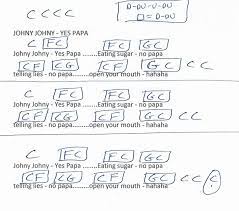 C C C C
D-DU-U-DU
□ = D-DU
JOHNY JOHNY - YES PAPA
C FC FC GC
Johny Johny - Yes Papa ........Eating sugar - no papa
CF CG CF GC CC
telling lies - no papa..........open your mouth - hahaha
C FC FC GC
Johny Johny - Yes Papa ........Eating sugar - no papa
CF CG CF GC C C
telling lies - no papa..........open your mouth - hahaha
C FC FC GC
Johny Johny - Yes Papa ........Eating sugar - no papa
CF CG CF GC C C C
telling lies - no papa..........open your mouth - hahaha